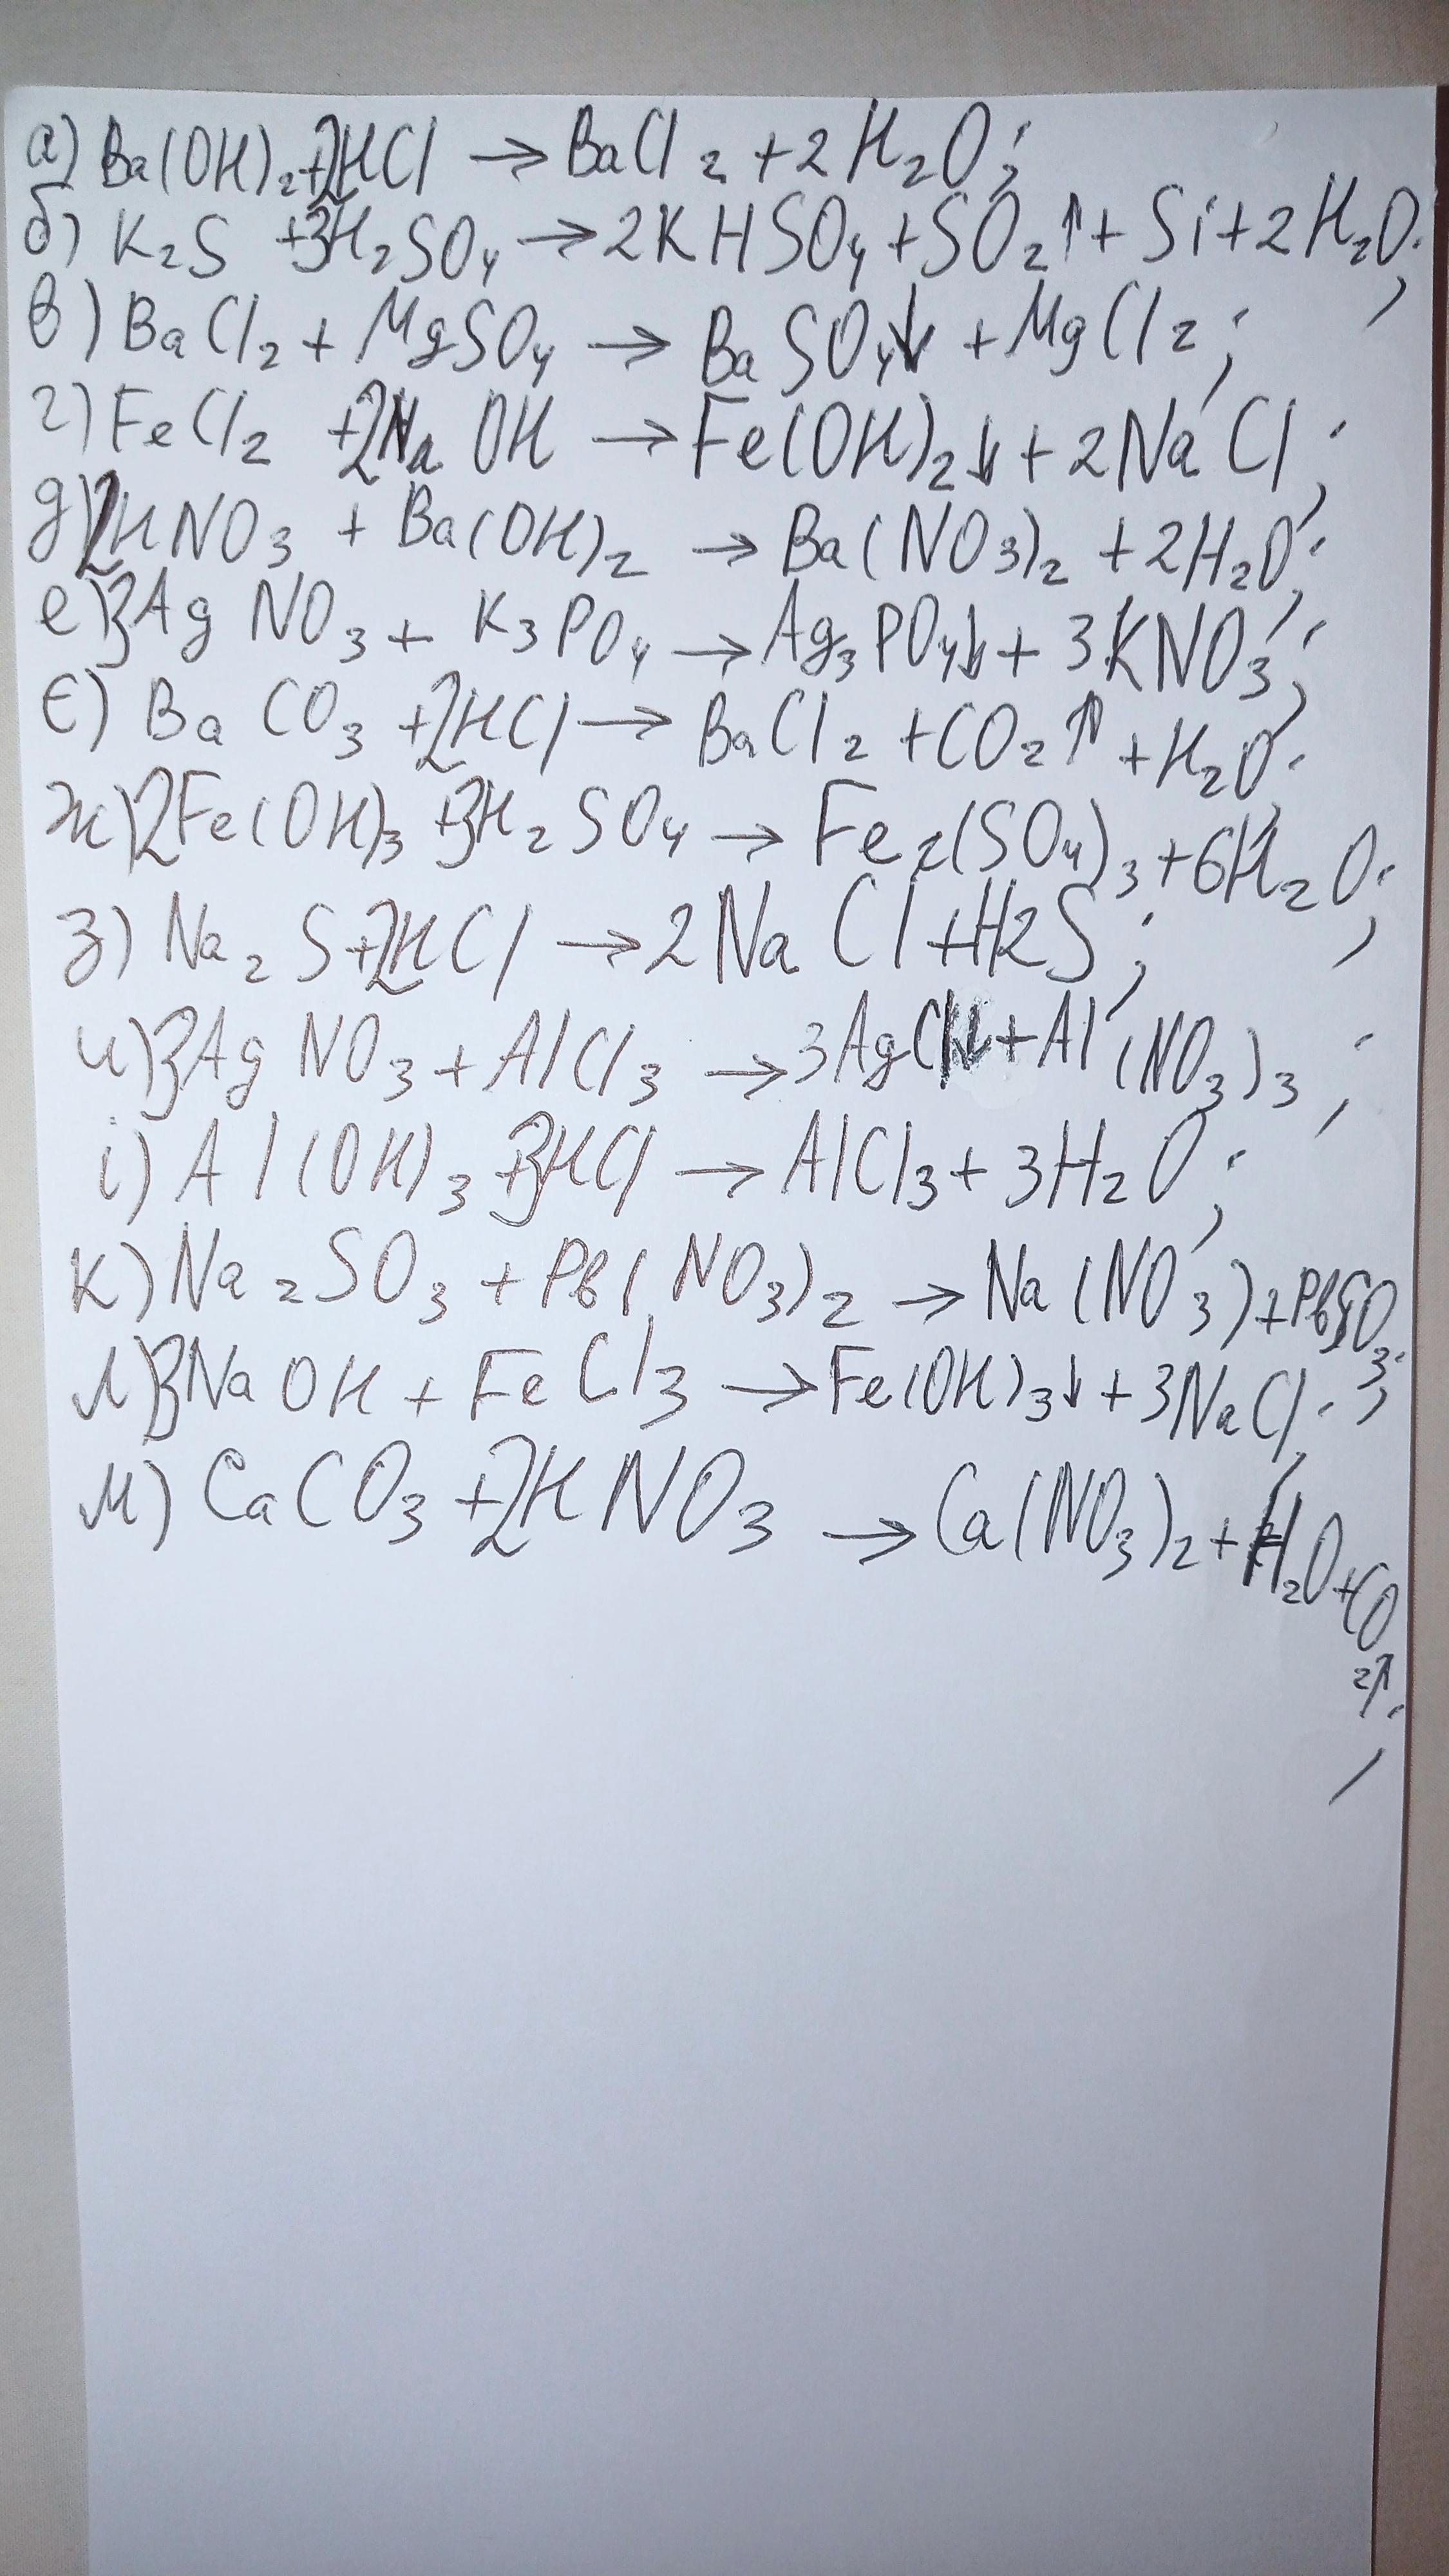 а) Ba(OH)₂+2HCl → BaCl₂ + 2H₂O;
б) K₂S +3H₂SO₄ → 2KHSO₄ + SO₂↑ + Si + 2H₂O;
в) BaCl₂ + MgSO₄ → BaSO₄↓ + MgCl₂;
г) FeCl₂ +2NaOH → Fe(OH)₂↓ + 2NaCl;
д) 2HNO₃ + Ba(OH)₂ → Ba(NO₃)₂ + 2H₂O;
е) 3AgNO₃ + K₃PO₄ → Ag₃PO₄↓ + 3KNO₃;
є) BaCO₃ +2HCl → BaCl₂ + CO₂↑ + H₂O;
ж) 2Fe(OH)₃ +3H₂SO₄ → Fe₂(SO₄)₃ + 6H₂O;
з) Na₂S+2HCl → 2NaCl + H2S;
и) 3AgNO₃ + AlCl₃ → 3AgCl↓ + Al(NO₃)₃;
і) Al(OH)₃ +3HCl → AlCl₃ + 3H₂O;
к) Na₂SO₃ + Pb(NO₃)₂ → Na(NO₃) + PbSO₃;
л) 3NaOH + FeCl₃ → Fe(OH)₃↓ + 3NaCl;
м) CaCO₃ +2HNO₃ → Ca(NO₃)₂ + H₂O + CO₂↑;